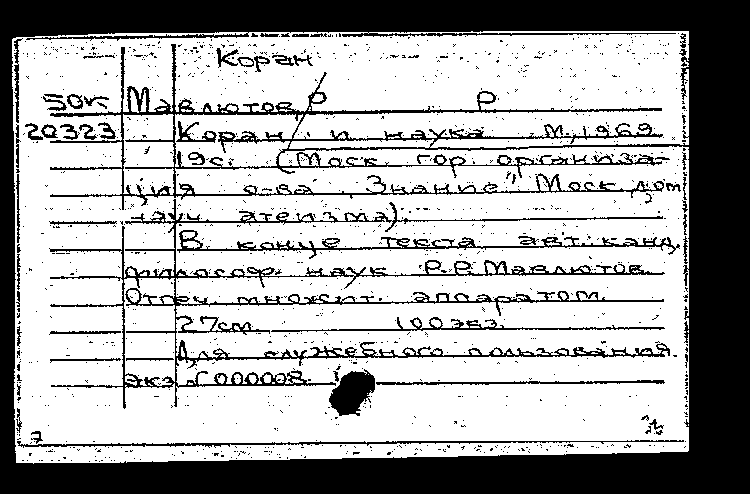 Коран
50к Мавлютов, Р Р
20323 Коран и наука М., 1969
19с. (Моск. гор. организа-
ция о-ва "Знание" Моск. дом
науч. атеизма).
В конце текста авт. канд.
философ. наук Р.Р. Мавлютов.
Отпеч. множит. аппаратом.
27см. 100 экз.
Для служебного пользования
экз. 000008
7